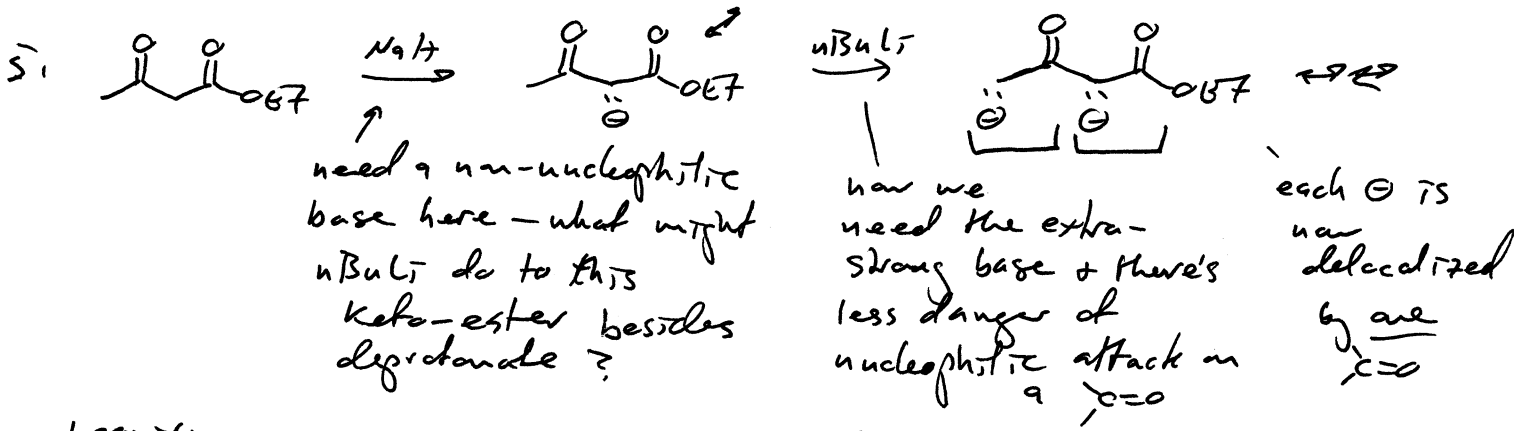 5.
O O
OET
NaH
O O
OET
⊖
nBuLi
O O
OET
⊖ ⊖
need a non-nucleophilic
base here — what might
nBuLi do to this
keto-ester besides
deprotonate ?
now we
need the extra-
strong base + there's
less danger of
nucleophilic attack on
a C=O
each ⊖ is
now
delocalized
by one
C=O